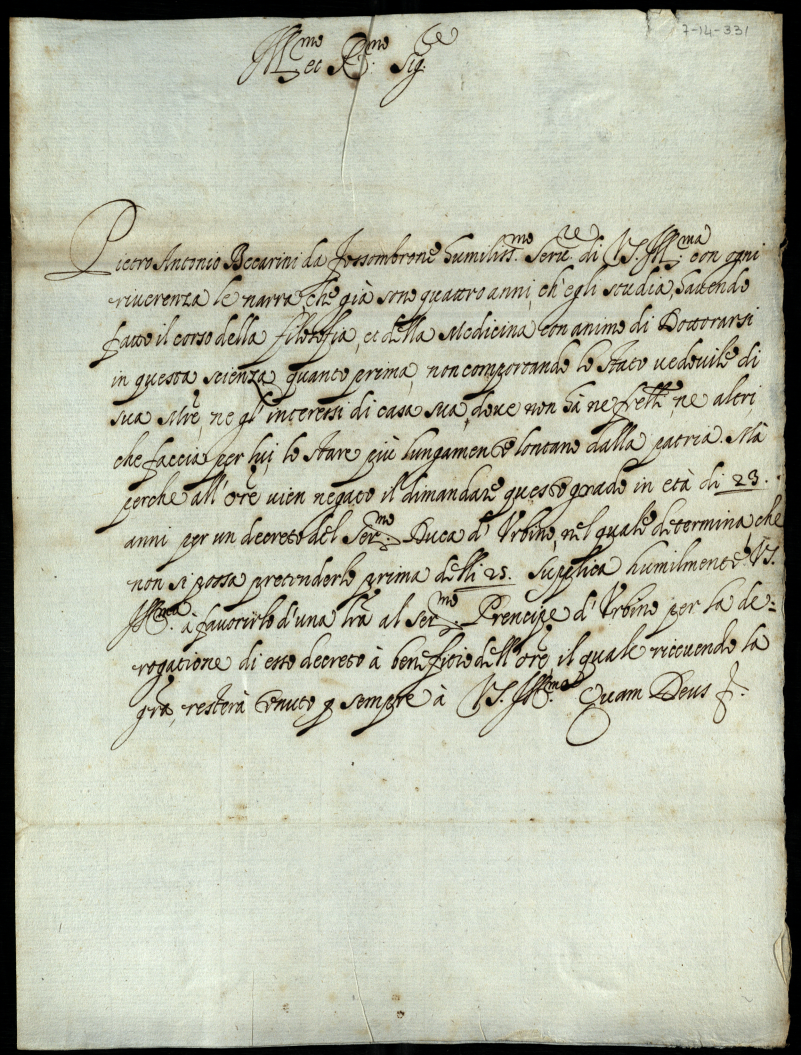 7-14-331
Ill.mo et R.mo Sig.re
Pietro Antonio Beccarini da Fossombrone humiliss.mo Serv.re di V.S. Ill.ma con ogni
riverenza le narra, che già sono quattro anni, ch'egli studia, havendo
fatto il corso della filosofia, et della Medicina con animo di Dottorarsi
in questa scienza quanto prima, non comportando lo stato vedovile di
sua M̃re, ne gl'interessi di casa sua, dove non hà ne frelli ne altri
che faccia per lui, lo stare più lungamente lontano dalla patria. Mà
perche all'Orẽ vien negato il dimandare questo grado in età di 23.
anni per un decreto del Ser.mo Duca d'Urbino, nel quale determina, che
non si possa pretenderlo prima delli 25. Supplica humilmente V.S.
Ill.ma à favorirlo d'una lr̃a al Ser.mo Prencipe d'Urbino per la de=
rogatione di esso decreto à beneficio dell'Orẽ, il quale ricevendo la
gr̃a, resterà tenuto p sempre à V.S. Ill.ma Quam Deus &.